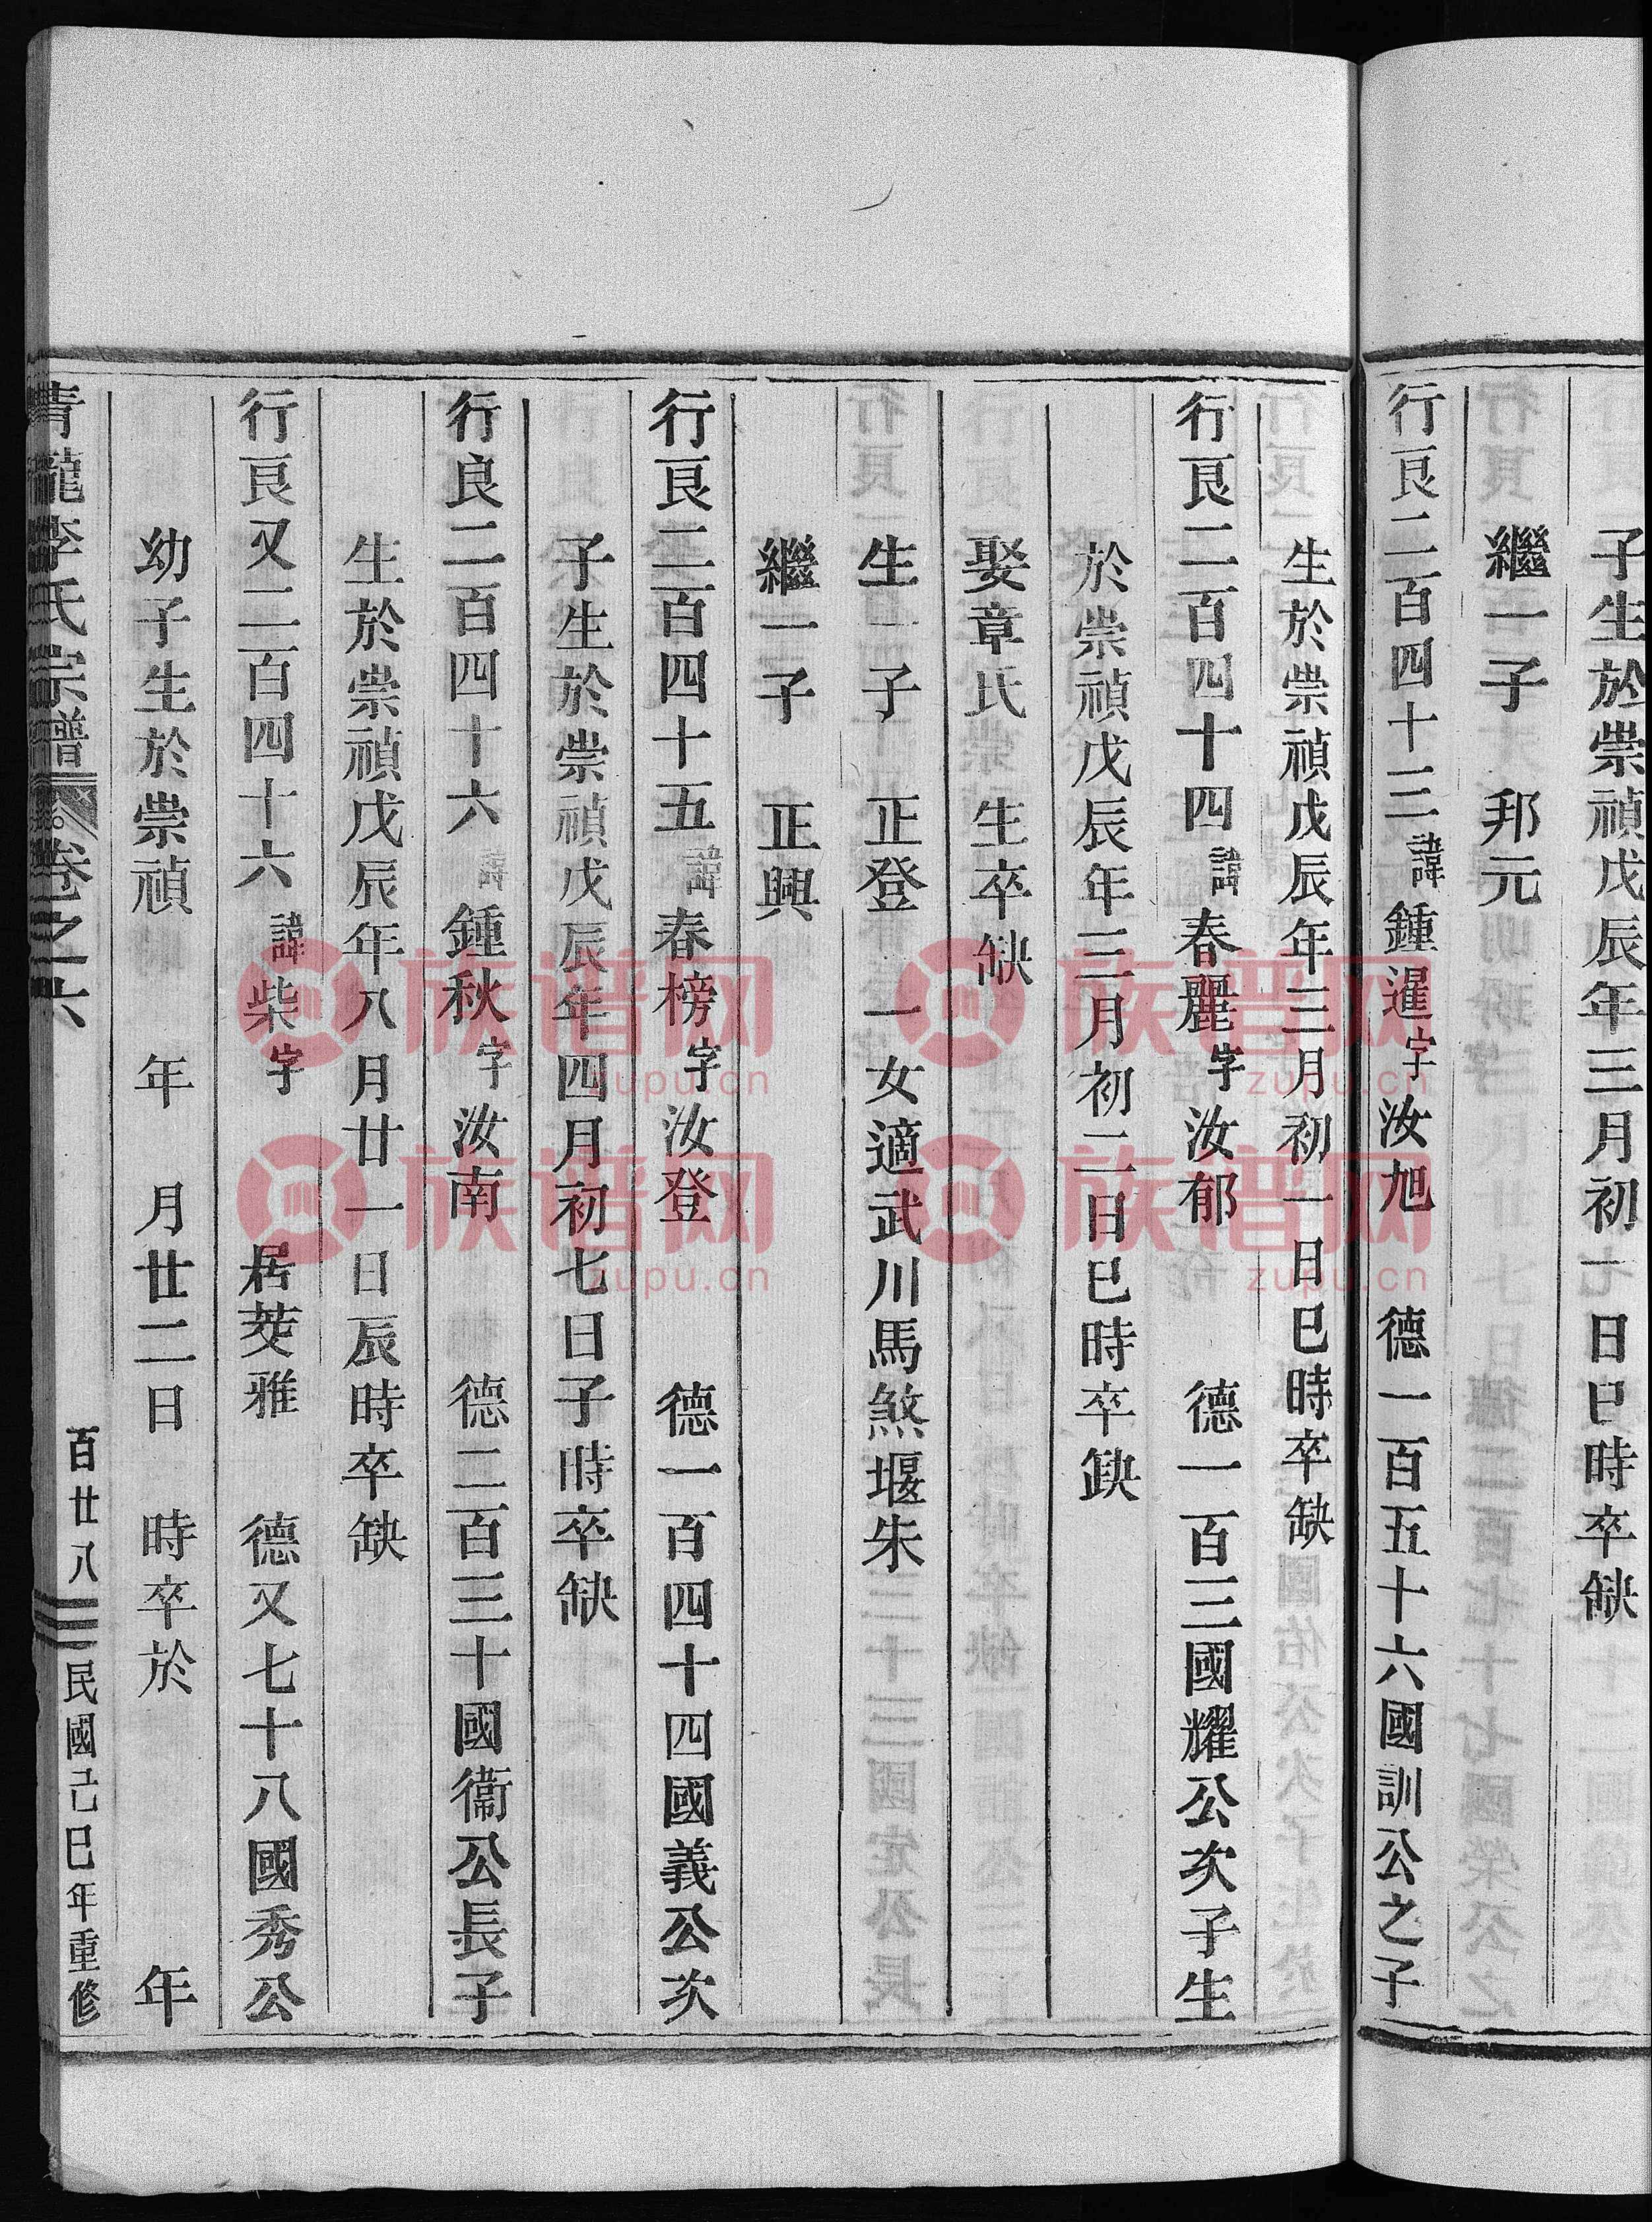 子生於崇禎戊辰年三月初一日巳時卒缺
繼一子 邦元
行良二百四十三諱鍾暹字汝旭 德一百五十六國訓公之子
生於崇禎戊辰年三月初一日巳時卒缺
行良二百四十四諱春麗字汝郁 德一百三國耀公次子生
於崇禎戊辰年三月初二日巳時卒缺
娶章氏 生卒缺
生一子 正登 一女適武川馬煞堰朱
繼一子 正興
行良二百四十五諱春榜字汝登 德一百四十四國義公次
子生於崇禎戊辰年四月初七日子時卒缺
行良二百四十六諱鍾秋字汝南 德二百三十國衞公長子
生於崇禎戊辰年八月廿一日辰時卒缺
行良又二百四十六諱柴字 居茭雅 德又七十八國秀公
幼子生於崇禎 年 月廿二日 時卒於 年
青龍李氏宗譜 卷之六 百廿八 民國己巳年重修
族谱网
zupu.cn
族谱网
zupu.cn
族谱网
zupu.cn
族谱网
zupu.cn